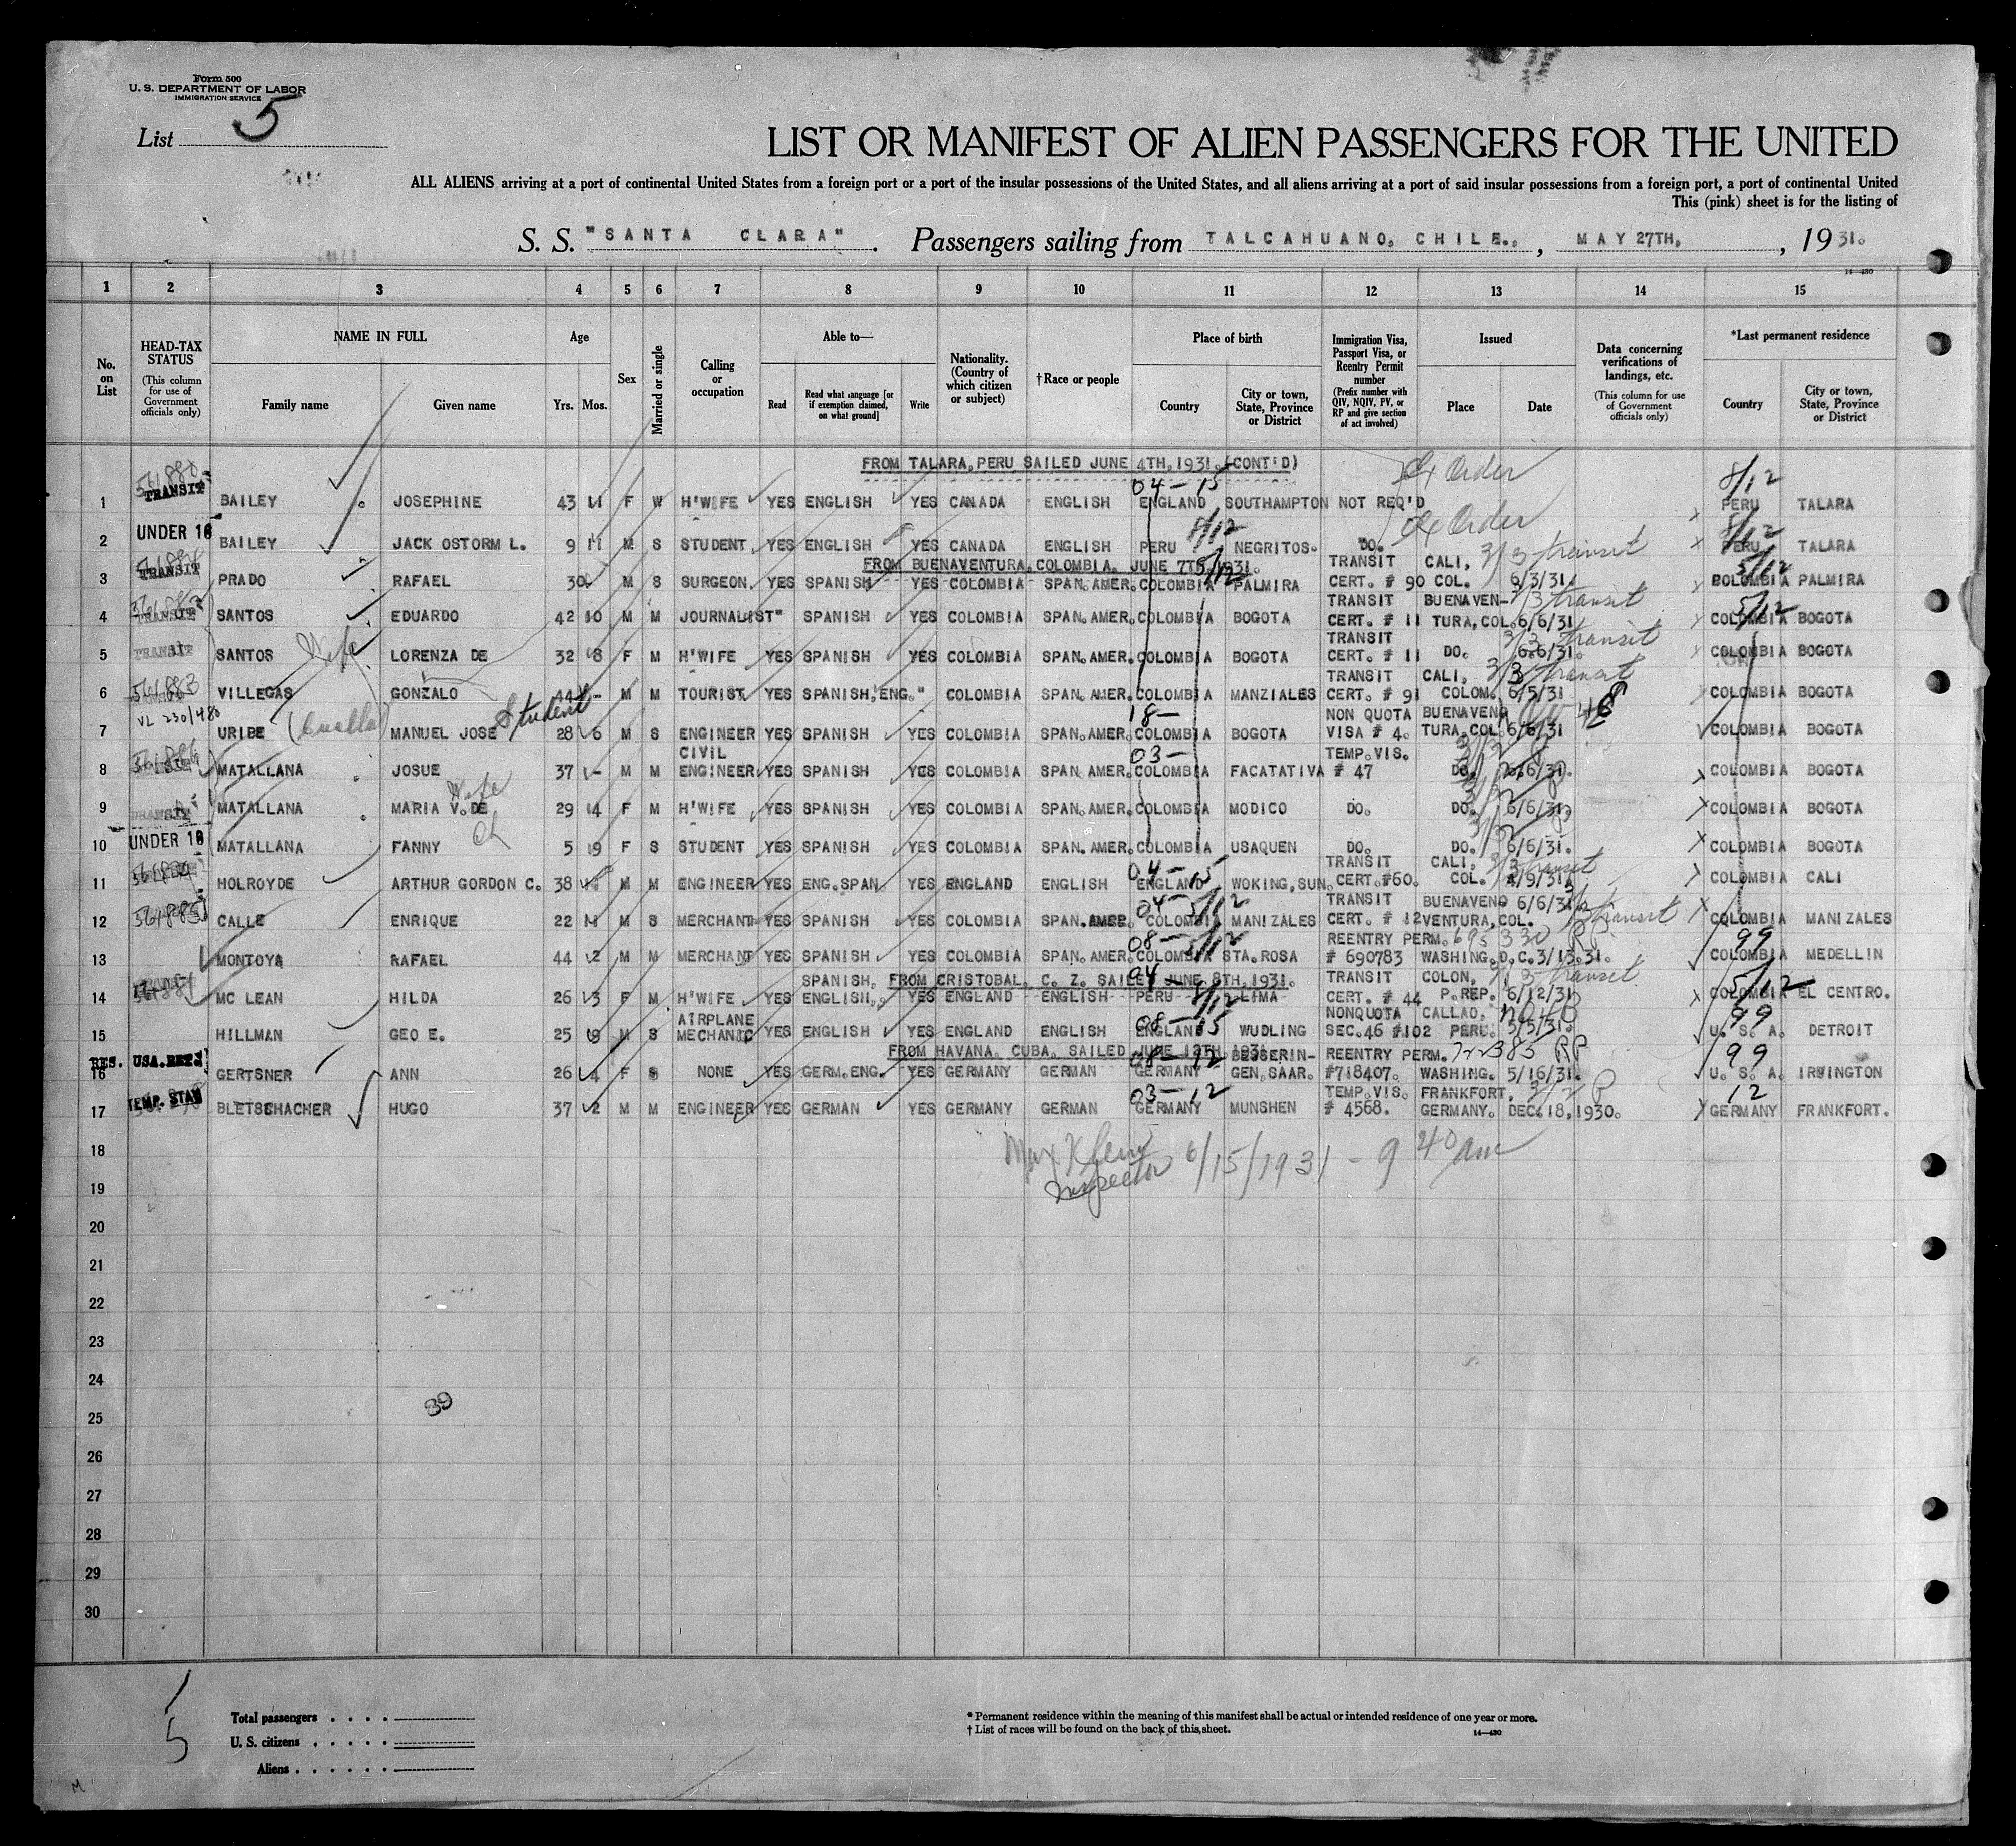 Form 500
U. S. DEPARTMENT OF LABOR
IMMIGRATION SERVICE
List 5
LIST OR MANIFEST OF ALIEN PASSENGERS FOR THE UNITED
ALL ALIENS arriving at a port of continental United States from a foreign port or a port of the insular possessions of the United States, and all aliens arriving at a port of said insular possessions from a foreign port, a port of continental United
This (pink) sheet is for the listing of
S. S. "SANTA CLARA". Passengers sailing from TALCAHUANO, CHILE., , MAY 27TH, , 1931.
14—430
1 2 3 4 5 6 7 8 9 10 11 12 13 14 15
No. on List
HEAD-TAX STATUS (This column for use of Government officials only)
NAME IN FULL Family name Given name
Age Yrs. Mos.
Sex
Married or single
Calling or occupation
Able to— Read Read what language [or if exemption claimed, on what ground] Write
Nationality. (Country of which citizen or subject)
†Race or people
Place of birth Country City or town, State, Province or District
Immigration Visa, Passport Visa, or Reentry Permit number (Prefix number with QIV, NQIV, PV, or RP and give section of act involved)
Issued Place Date
Data concerning verifications of landings, etc. (This column for use of Government officials only)
*Last permanent residence Country City or town, State, Province or District
FROM TALARA, PERU SAILED JUNE 4TH, 1931. (CONT'D)
04-15 Order 8/12
1 TRANSIT BAILEY JOSEPHINE 43 11 F W H'WIFE YES ENGLISH YES CANADA ENGLISH ENGLAND SOUTHAMPTON NOT REQ'D PERU TALARA
UNDER 16 8/12 Order 8/12
2 BAILEY JACK OSTORM L. 9 11 M S STUDENT. YES ENGLISH YES CANADA ENGLISH PERU NEGRITOS. DO. PERU TALARA
FROM BUENAVENTURA, COLOMBIA. JUNE 7TH, 1931.
TRANSIT CALI, 3/3 transit 5/12
3 TRANSIT PRADO RAFAEL 30 M S SURGEON. YES SPANISH YES COLOMBIA SPAN.AMER. COLOMBIA PALMIRA CERT. # 90 COL. 6/3/31. BOLOMBIA PALMIRA
TRANSIT BUENAVEN- 3/3 transit 5/12
4 SANTOS EDUARDO 42 10 M M JOURNALIST " SPANISH YES COLOMBIA SPAN.AMER. COLOMBIA BOGOTA CERT. # 11 TURA, COL. 6/6/31 COLOMBIA BOGOTA
Wife TRANSIT 3/3 transit
5 TRANSIT SANTOS LORENZA DE 32 8 F M H'WIFE YES SPANISH YES COLOMBIA SPAN.AMER. COLOMBIA BOGOTA CERT. # 11 DO. 6/6/31. COLOMBIA BOGOTA
TRANSIT CALI, 3/3 transit
6 VILLEGAS GONZALO 44 - M M TOURIST. YES SPANISH, ENG. " COLOMBIA SPAN.AMER. COLOMBIA MANZIALES CERT. # 91 COLOM. 6/5/31 COLOMBIA BOGOTA
VL 230/480 Student 18- NON QUOTA BUENAVEN
7 URIBE MANUEL JOSE 28 6 M S ENGINEER YES SPANISH YES COLOMBIA SPAN.AMER. COLOMBIA BOGOTA VISA # 4. TURA, COL. 6/6/31 COLOMBIA BOGOTA
CIVIL 03- TEMP. VIS.
8 MATALLANA JOSUE 37 - M M ENGINEER YES SPANISH YES COLOMBIA SPAN AMER. COLOMBIA FACATATIVA # 47 DO. 6/6/31. COLOMBIA BOGOTA
Wife
9 TRANSIT MATALLANA MARIA V. DE 29 4 F M H'WIFE YES SPANISH YES COLOMBIA SPAN.AMER. COLOMBIA MODICO DO. DO. 6/6/31 COLOMBIA BOGOTA
Ch
10 UNDER 16 MATALLANA FANNY 5 9 F S STUDENT YES SPANISH YES COLOMBIA SPAN.AMER. COLOMBIA USAQUEN DO. DO. 6/6/31. COLOMBIA BOGOTA
04-15 TRANSIT CALI, 3/3 transit
11 HOLROYDE ARTHUR GORDON C. 38 M M ENGINEER YES ENG.SPAN. YES ENGLAND ENGLISH ENGLAND WOKING, SUN. CERT. #60. COL. 4/9/31. COLOMBIA CALI
04- 5/12 TRANSIT BUENAVEN 6/6/31 transit
12 CALLE ENRIQUE 22 11 M S MERCHANT YES SPANISH YES COLOMBIA SPAN.AMER. COLOMBIA MANIZALES CERT. # 12 VENTURA, COL. COLOMBIA MANIZALES
08- 5/12 REENTRY PERM. 695330 RP. 99
13 MONTOYA RAFAEL 44 2 M M MERCHANT YES SPANISH YES COLOMBIA SPAN.AMER. COLOMBIA STA. ROSA # 690783 WASHING. D. C. 3/13.31. COLOMBIA MEDELLIN
SPANISH, FROM CRISTOBAL, C. Z. SAILED JUNE 8TH, 1931. 04- TRANSIT COLON, 3/3 transit 5/12
14 MC LEAN HILDA 26 3 F M H'WIFE. YES ENGLISH. YES ENGLAND ENGLISH PERU 8/12 LIMA CERT. # 44 P. REP. 6/12/31 COLOMBIA EL CENTRO.
AIRPLANE 08-15 NONQUOTA CALLAO, 99
15 HILLMAN GEO E. 25 9 M S MECHANIC YES ENGLISH YES ENGLAND ENGLISH ENGLAND WUDLING SEC. 46 #102 PERU. 5/5/31. U. S. A. DETROIT
FROM HAVANA, CUBA. SAILED JUNE 12TH, 1931.
RES. USA. 08-12 BESSERIN- REENTRY PERM. 722385 RP 99
16 GERTSNER ANN 26 4 F S NONE YES GERM. ENG. YES GERMANY GERMAN GERMANY GEN, SAAR. #718407. WASHING. 5/16/31. U. S. A. IRVINGTON
TEMP. STAY 03-12 TEMP. VIS. FRANKFORT, 3/2 P 12
17 BLETSCHACHER HUGO 37 2 M M ENGINEER YES GERMAN YES GERMANY GERMAN GERMANY MUNSHEN # 4568. GERMANY. DEC. 18, 1930. GERMANY FRANKFORT.
18 6/15/1931 - 9 40 am
Inspector
19
20
21
22
23
24
25
39
26
27
28
29
30
5
Total passengers
U. S. citizens
Aliens
M
* Permanent residence within the meaning of this manifest shall be actual or intended residence of one year or more.
† List of races will be found on the back of this sheet.
14—430